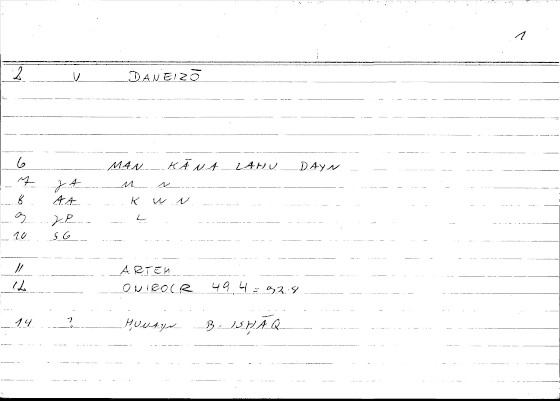 1
2 V DANEIZŌ
6 MAN KĀNA LAHU DAYN
7 JA M N
8 AA K W N
9 JP L
10 SG
11 ARTEM
12 ONIROCR 49,4 = 92.8
14 ? ḤUNAYN B. ISḤĀQ